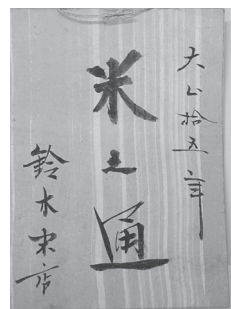 大正拾五年
米之通
鈴木米店